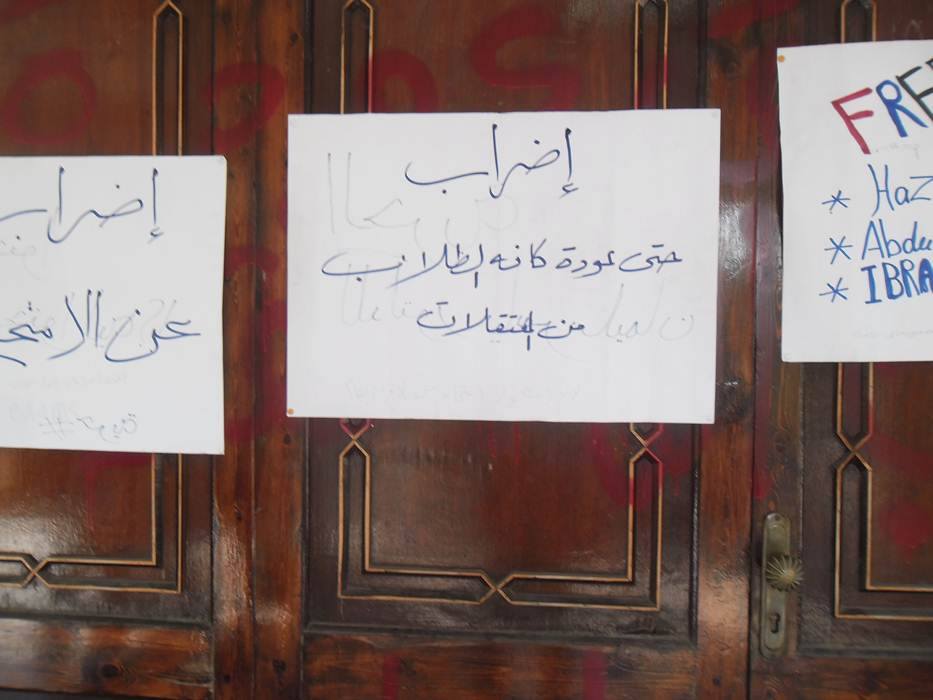 إضراب
حتى عودة كافه الطلاب
من المعتقلات
إضراب
عن الامتح
FREE
* Haz
* Abdu
* IBRA